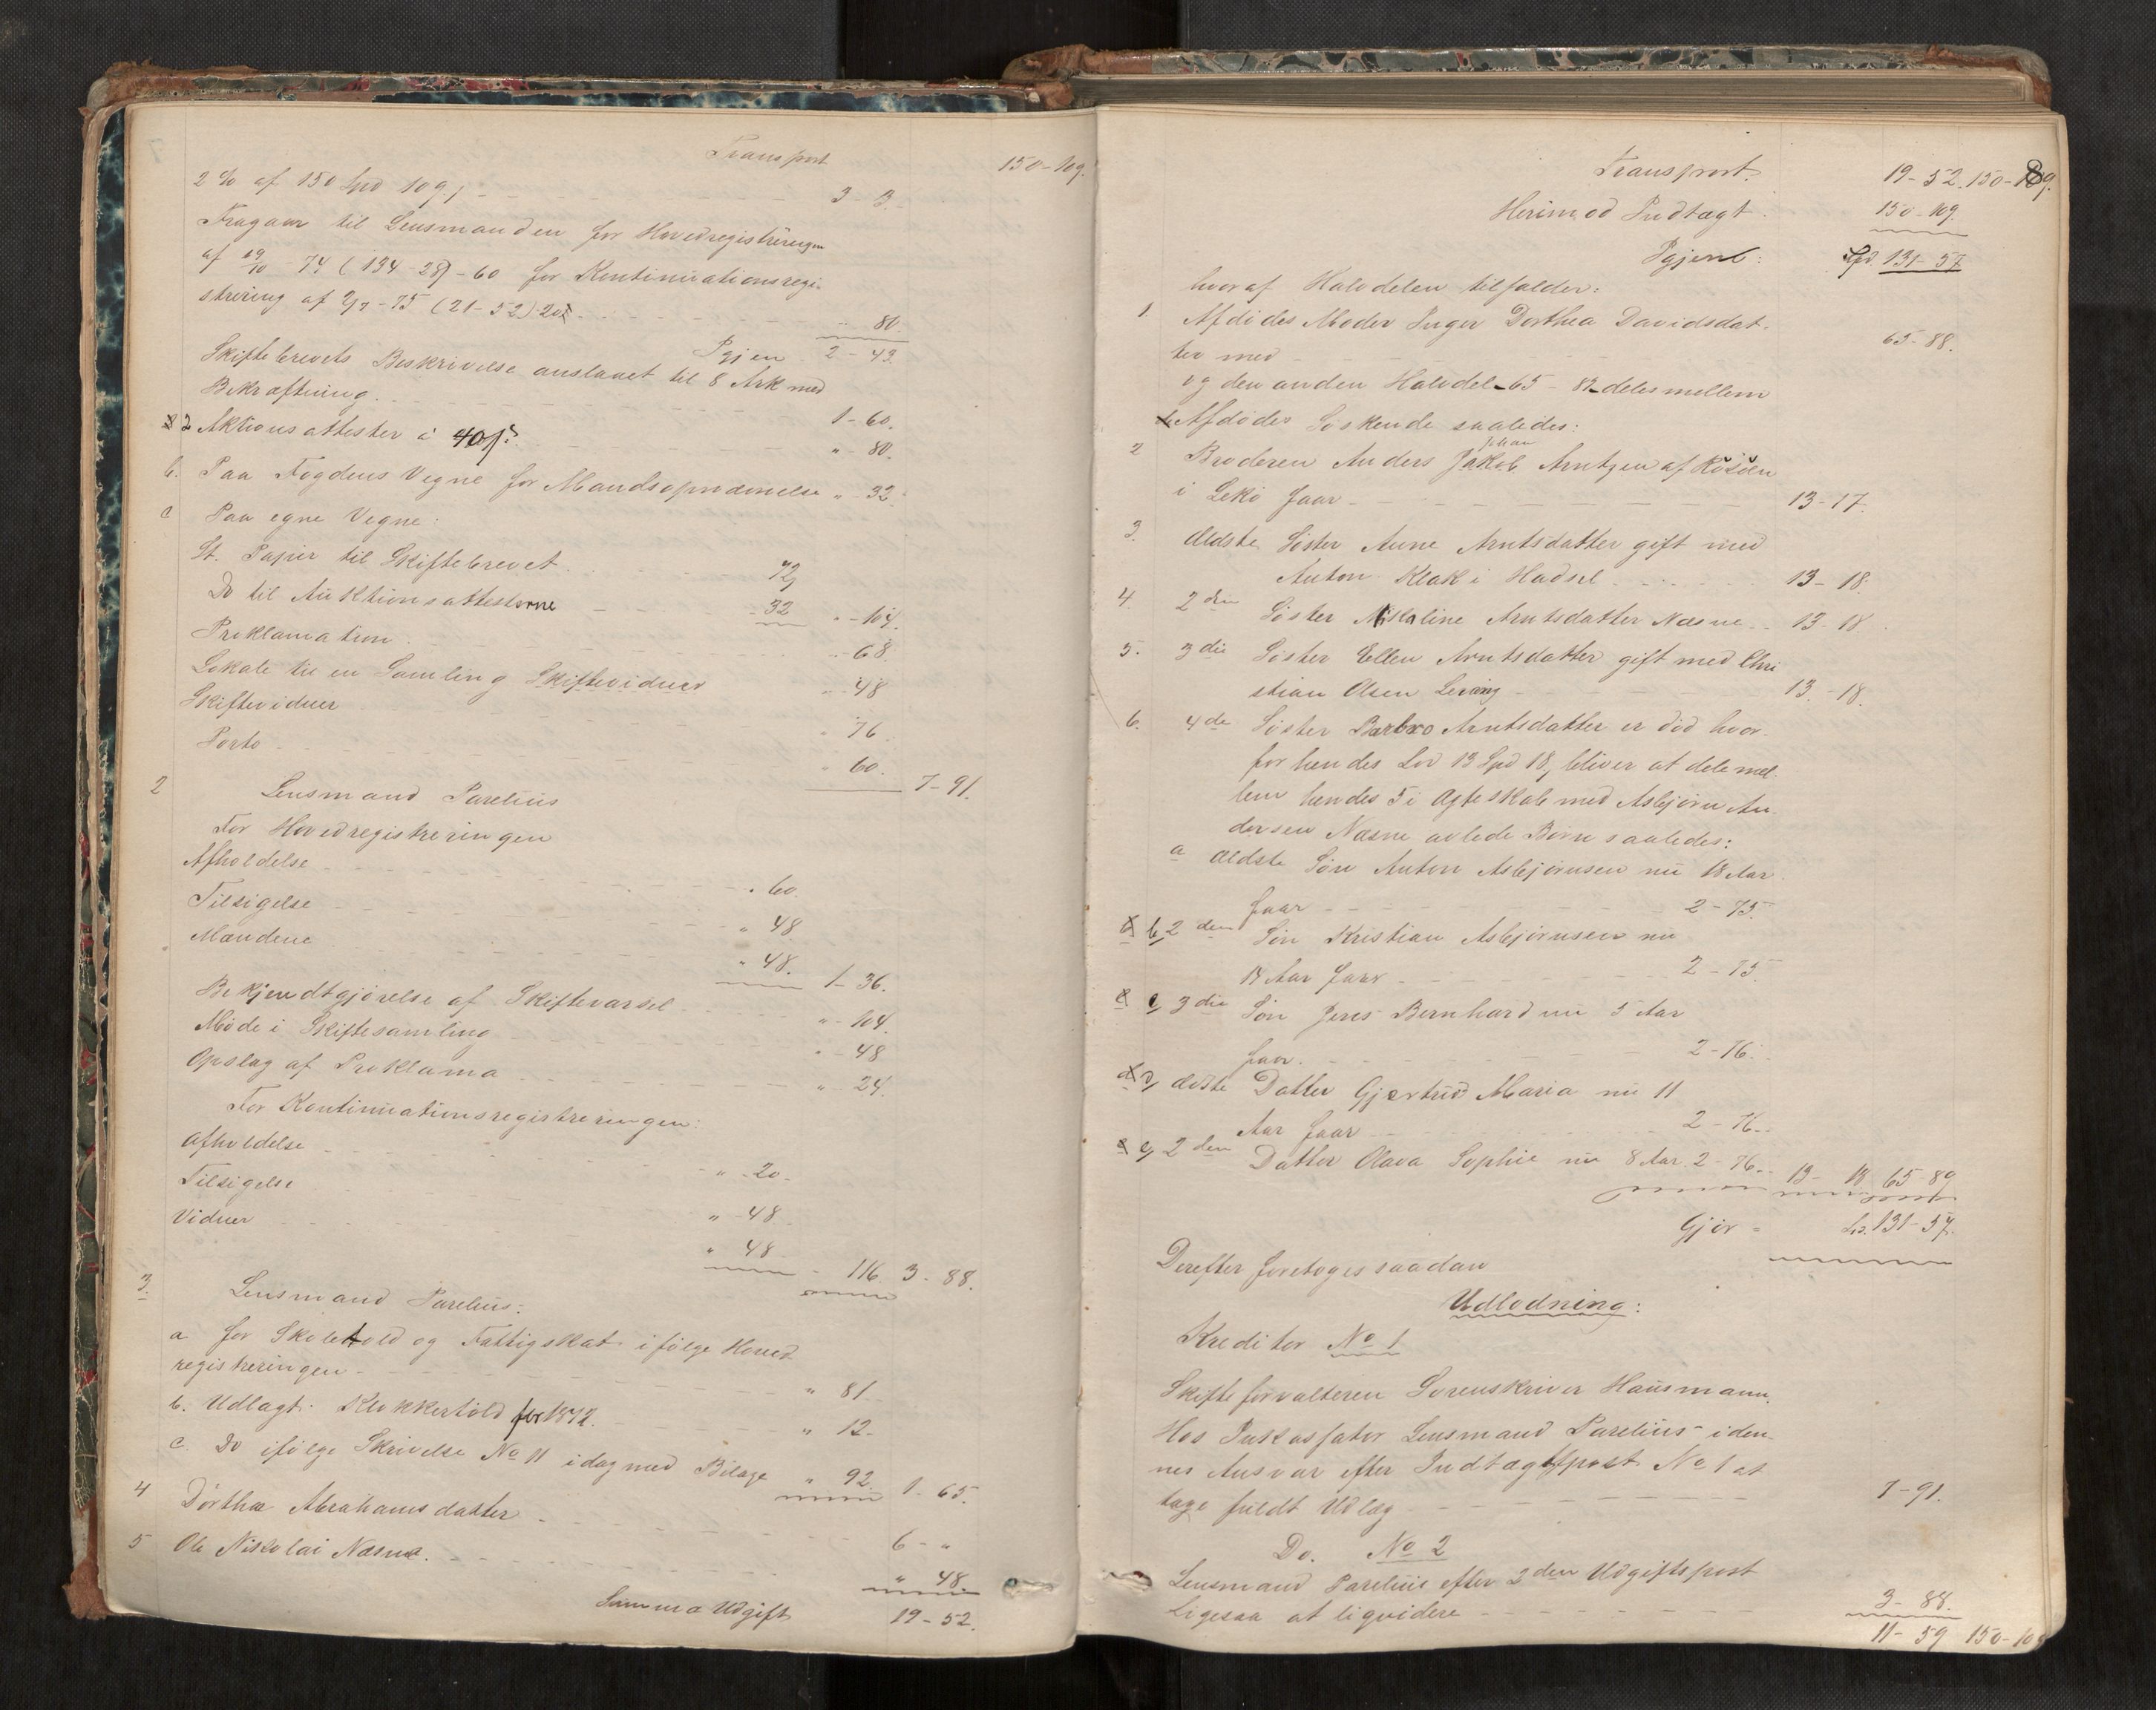 Transport 150-109.
2 % af 150 Spd 109 ʃ - 3-3.
Fragaar til Lensmanden for Hovedregistreringen
af 29/10 - 74 (134-28) - 60 for Kontinuationsregi-
strering af 2/7-75 (21-52) 20 ʃ " 80.
Igjen 2-43.
Skiftebrevets Beskrivelse anslaaet til 8 Ark med
Bekræftning. 1-60.
2 Aktionsattester á 40 ʃ " - 80.
b. Paa Fogdens Vegne for Mandsopnævnelse " - 32.
c Paa egne Vegne:
St. Papir til Skiftebrevet 72
Do til Auktionsattesterne 32 " - 104.
Proklamation 68
Lokale til en Samling Skiftevidner 48
Skiftevidner 76
Porto 60. 7-91.
2 Lensmand Parelius
For Hovedregistreringen
Afholdelse " 60.
Tilsigelse " 48
Mændene " 48. 1-36.
Bekjendtgjørelse af Skiftevarsel " - 104.
Møde i Skiftesamling " - 48
Opslag af Proklama " 24.
For Kontinuationsregistreringen:
Afholdelse " - 20
Tilsigelse " - 48
Vidner " 48 - 116. 3-88.
3. Lensmand Parelius:
a for Skolehold og Fattigskat ifølge Hoved
registreringen " 81
b. Udlagt: Klokkertold for 1872. " 12
c. Do ifølge Skrivelse No 11 idag med Bilage " 92 1-65.
4 Dorthea Abrahamsdatter 6 - "
5 Ole Nikolai Næsne. " 48.
Summa Udgift 19-52.
8
Transport. 19-52. 150-109.
Herimod Indtægt 150-109.
Igjen: Spd 131-57
hvoraf Halvdelen tilfalder:
1. Afdødes Moder Inger Dorthea Davidsdat-
ter med 65-88.
og den anden Halvdel 65-89 deles mellem
Afdødes Søskende saaledes:
Johan
2 Broderen Anders Jakob Arntzen af Køsøen
i Lekø faar 13-17.
3. Ældste Søster Anne Arntsdatter gift med
Anton Klak i Hadsel 13-18.
4. 2den Søster Nikoline Arntsdatter Næsne 13-18
5. 3die Søster Ellen Arntsdatter gift med Chri
stian Olsen Leering 13-18.
6. 4de Søster Barbro Arntsdatter er død hvor-
for hendes Lod 13 Spd 18 ʃ bliver at dele mel-
lem hendes 5 i Ægteskab med Asbjørn An-
dersen Næsne avlede Børn saaledes:
a Ældste Søn Anton Asbjørnsen nu 18 Aar
faar 2-75.
b, 2den Søn Kristian Asbjørnsen nu
14 Aar faar 2-75
c, 3die Søn Jens Bernhard nu 5 Aar
faar. 2-76.
d, ældste Datter Gjertrud Maria nu 11
Aar faar 2-76.
e, 2den Datter Olava Sophie nu 8 Aar 2-76. 13-18 65-89
Gjør = Sp. 131-57.
Derefter foretoges saadan
Udlodning:
Kreditor No 1
Skifteforvalteren Sorenskriver Hausmann.
Hos Inkassator Lensmand Parelius iden-
nes Ansvar efter Indtægtspost No 1 at
tage fuldt Udlæg 7-91.
Do. No 2
Lensmand Parelius efter 2den Udgiftspost
Ligesaa at liqvidere 3-88.
11-59 150-109